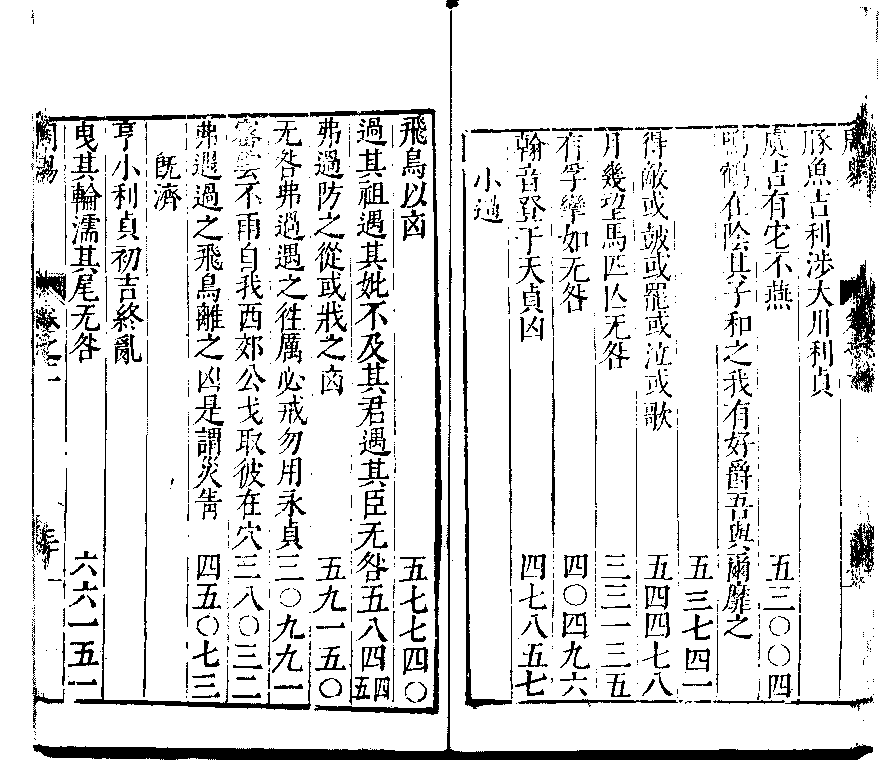 豚魚吉利涉大川利貞
虞吉有它不燕 五三〇〇四
鳴鶴在陰其子和之我有好爵吾與爾靡之
五三七四一
得敵或皷或罷或泣或歌 五四四七八
月幾望馬匹亾无咎 三三一三五
有孚攣如无咎 四〇四九六
翰音登于天貞凶 四七八五七
小過
飛鳥以㐫 五七七四〇
過其祖遇其妣不及其君遇其臣无咎 五八四四五
弗過防之從或戕之㐫 五九一五〇
无咎弗過遇之徃厲必戒勿用永貞 三〇九九一
密雲不雨自我西郊公弋取彼在穴 三八〇三二
弗遇過之飛鳥離之凶是謂災眚 四五〇七三
旣濟
亨小利貞初吉終亂
曳其輪濡其尾无咎 六六一五一
周易 卷之二